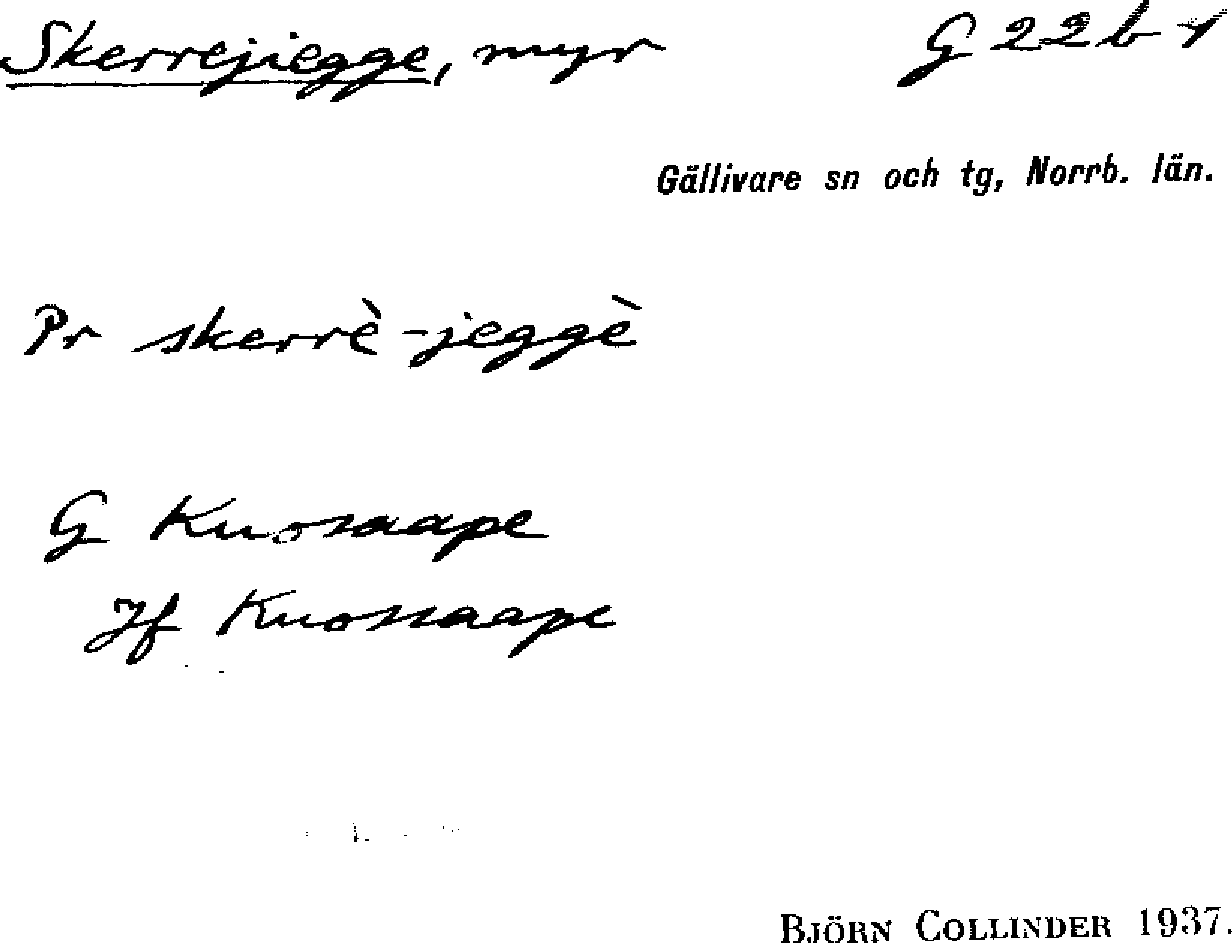 Skerrejiegge, myr G 22 b 1
Gällivare sn och tg, Norrb. län.
Pr skerrè-jeggè
G Kuosaape
Jf Kuossaape
BJÖRN COLLINDER 1937.